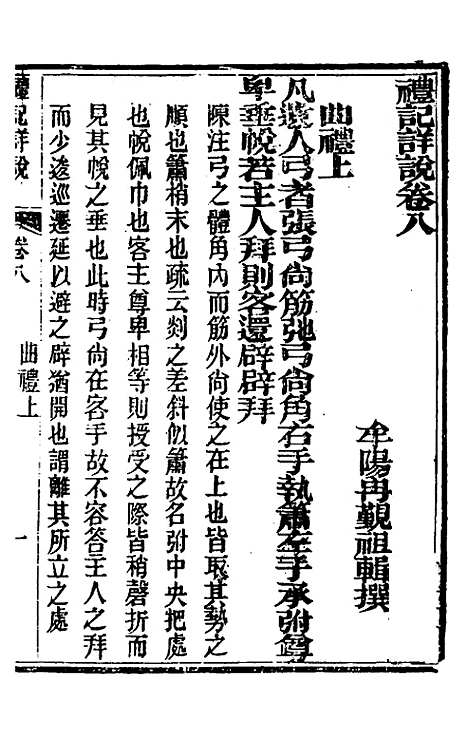 禮記詳說卷八
牟陽冉覲祖輯撰
曲禮上
凡遺人弓者張弓尚筋弛弓尚角右手執簫左手承弣尊
卑垂帨若主人拜則客還辟辟拜
陳注弓之體角內而筋外尚使之在上也皆取其勢之
順也簫梢末也疏云剡之差斜似簫故名弣中央把處
也帨佩巾也客主尊卑相等則授受之際皆稍磬折而
見其帨之垂也此時弓尚在客手故不容答主人之拜
而少逡巡遷延以避之辟猶開也謂離其所立之處
禮記詳說
卷八
曲禮上
一